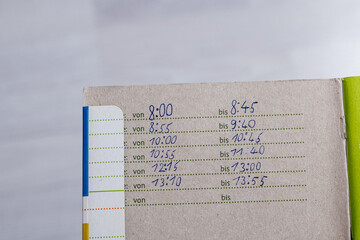 von 8:00 bis 8:45
von 8:55 bis 9:40
von 10:00 bis 10:45
von 10:55 bis 11:40
von 12:15 bis 13:00
von 13:10 bis 13:55
von bis